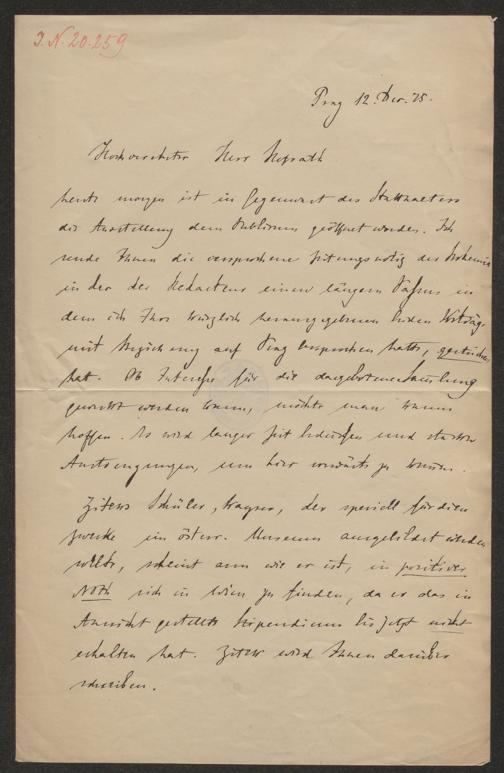 J. N. 20.259
Prag 12. Dec. 75.
Hochverehrter Herr Hofrath
heute morgen ist in Gegenwart des Statthalters
die Ausstellung dem Publicum geöffnet worden. Ich
sende Ihnen die versprochene Zeitungsnotiz der Bohemia
in der der Redacteur einen längern Passus in
dem ich Ihre kürzlich herausgegebenen beiden Vorträge
mit Beziehung auf Prag besprochen hatte, gestrichen
hat. Ob Interesse für die dargebotene Samlung
geweckt werden kann, möchte man kaum
hoffen. Es wird langer Zeit bedürfen und starker
Anstrengungen, um hier vorwärts zu kommen.
Ziteks Schüler, der speciell für diese
Zwecke im österr. Museum ausgebildet werden
sollte, scheint arm wie er ist, in positiver
Noth sich in Wien zu finden, da er das in
Aussicht gestellte Stipendium bis jetzt nicht
erhalten hat. Zitek wird Ihnen darüber
schreiben.